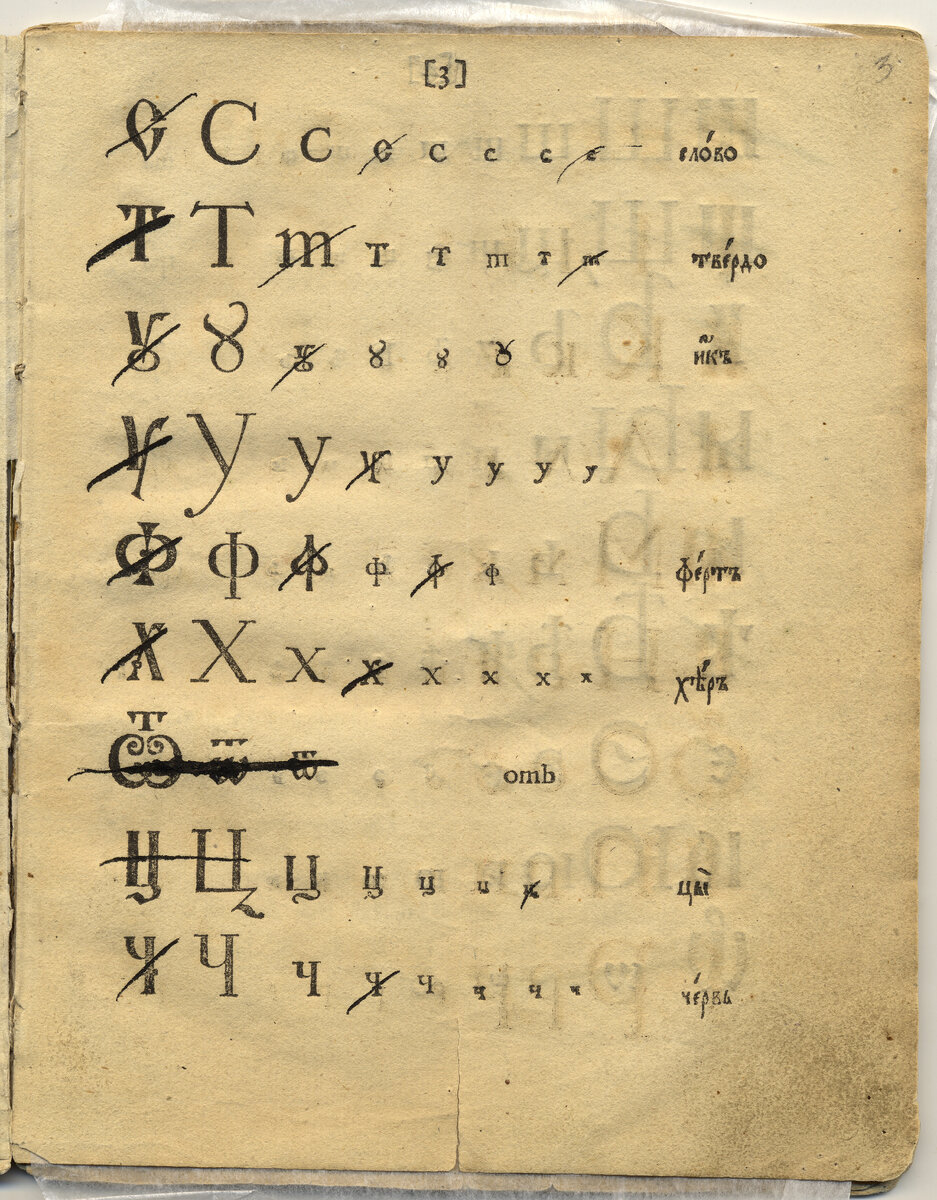 [3] 3
С С с с с с с с сло́во
Т Т т т т т т т тве́рдо
Ꙋ Ꙋ ꙋ ꙋ ꙋ ꙋ и҆́къ
У У у у у у у у
Ф Ф ф ф ф ф фе́ртъ
Х Х х х х х х х хѣ́ръ
Ѿ ѿ ѿ отъ
Ц Ц ц ц ц ц ц цы̀
Ч Ч ч ч ч ч ч ч че́рвь